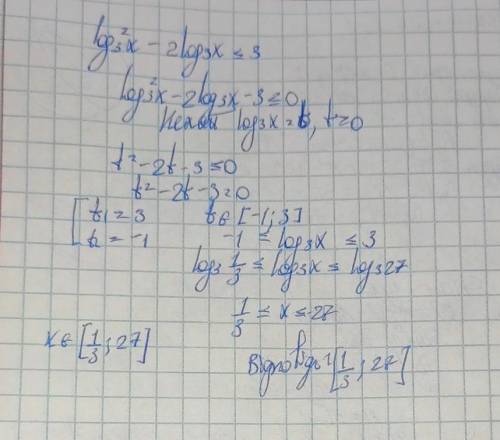 log₃²x − 2log₃x ≤ 3
log₃²x − 2log₃x − 3 ≤ 0
Нехай log₃x = t, t ≥ 0
t² − 2t − 3 ≤ 0
t² − 2t − 3 = 0
[ t₁ = 3 t ∈ [−1; 3]
t₂ = −1 −1 ≤ log₃x ≤ 3
log₃ 1/3 ≤ log₃x ≤ log₃27
1/3 ≤ x ≤ 27
x ∈ [1/3; 27]
Відповідь: [1/3; 27]